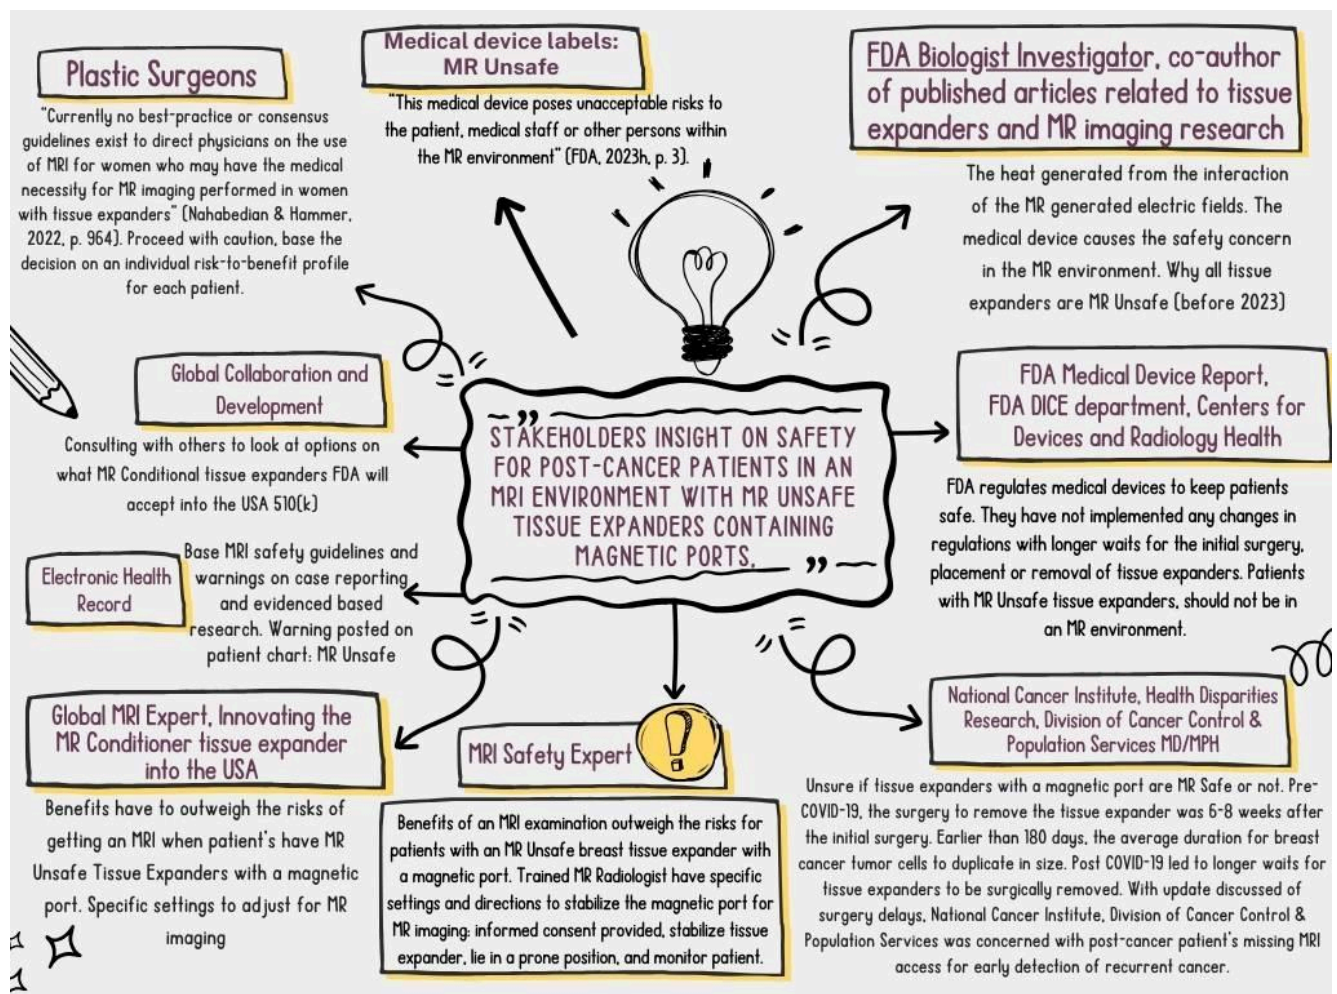 Plastic Surgeons
"Currently no best-practice or consensus
guidelines exist to direct physicians on the use
of MRI for women who may have the medical
necessity for MR imaging performed in women
with tissue expanders" (Nahabedian & Hammer,
2022, p. 964). Proceed with caution, base the
decision on an individual risk-to-benefit profile
for each patient.
Medical device labels:
MR Unsafe
"This medical device poses unacceptable risks to
the patient, medical staff or other persons within
the MR environment" (FDA, 2023h, p. 3).
FDA Biologist Investigator, co-author
of published articles related to tissue
expanders and MR imaging research
The heat generated from the interaction
of the MR generated electric fields. The
medical device causes the safety concern
in the MR environment. Why all tissue
expanders are MR Unsafe (before 2023)
Global Collaboration and
Development
Consulting with others to look at options on
what MR Conditional tissue expanders FDA will
accept into the USA 510(k)
"
STAKEHOLDERS INSIGHT ON SAFETY
FOR POST-CANCER PATIENTS IN AN
MRI ENVIRONMENT WITH MR UNSAFE
TISSUE EXPANDERS CONTAINING
MAGNETIC PORTS.
"
FDA Medical Device Report,
FDA DICE department, Centers for
Devices and Radiology Health
FDA regulates medical devices to keep patients
safe. They have not implemented any changes in
regulations with longer waits for the initial surgery,
placement or removal of tissue expanders. Patients
with MR Unsafe tissue expanders, should not be in
an MR environment.
Electronic Health
Record
Base MRI safety guidelines and
warnings on case reporting
and evidenced based
research. Warning posted on
patient chart: MR Unsafe
Global MRI Expert, Innovating the
MR Conditioner tissue expander
into the USA
Benefits have to outweigh the risks of
getting an MRI when patient's have MR
Unsafe Tissue Expanders with a magnetic
port. Specific settings to adjust for MR
imaging
MRI Safety Expert
!
Benefits of an MRI examination outweigh the risks for
patients with an MR Unsafe breast tissue expander with
a magnetic port. Trained MR Radiologist have specific
settings and directions to stabilize the magnetic port for
MR imaging: informed consent provided, stabilize tissue
expander, lie in a prone position, and monitor patient.
National Cancer Institute, Health Disparities
Research, Division of Cancer Control &
Population Services MD/MPH
Unsure if tissue expanders with a magnetic port are MR Safe or not. Pre-
COVID-19, the surgery to remove the tissue expander was 6-8 weeks after
the initial surgery. Earlier than 180 days, the average duration for breast
cancer tumor cells to duplicate in size. Post COVID-19 led to longer waits for
tissue expanders to be surgically removed. With update discussed of
surgery delays, National Cancer Institute, Division of Cancer Control &
Population Services was concerned with post-cancer patient's missing MRI
access for early detection of recurrent cancer.